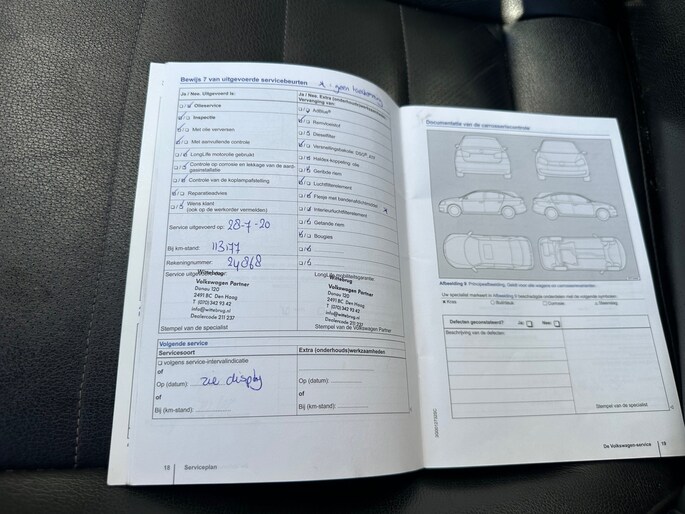 Bewijs 7 van uitgevoerde servicebeurten
Ja / Nee, Uitgevoerd is:
Olieservice
Inspectie
Met olie verversen
Met aanvullende controle
LongLife motorolie gebruikt
Controle op corrosie en lekkage van de aard-
gasinstallatie
Controle van de koplampafstelling
Reparatieadvies
Wens klant
(ook op de werkorder vermelden)
Service uitgevoerd op: 28-7-20
Bij km-stand: 113177
Rekeningnummer: 24868
Service uitgevoerd door:
Wittebrug
Volkswagen Partner
Donau 120
2491 BC Den Haag
T (070) 342 93 42
info@wittebrug.nl
Dealercode 211 237
Stempel van de specialist
Ja / Nee, Extra (onderhouds)werkzaamheden
Vervanging van:
AdBlue®
Remvloeistof
Dieselfilter
Versnellingsbakolie: DSG®, ATF
Haldex-koppeling: olie
Geribde riem
Luchtfilterelement
Flesje met bandenafdichtmiddel
Interieurluchtfilterelement
Getande riem
Bougies
LongLife mobiliteitsgarantie:
Wittebrug
Volkswagen Partner
Donau 120
2491 BC Den Haag
T (070) 342 93 42
info@wittebrug.nl
Dealercode 211 237
Stempel van de Volkswagen Partner
Volgende service
Servicesoort
Extra (onderhouds)werkzaamheden
volgens service-intervalindicatie
of
Op (datum): zie display
of
Bij (km-stand):
Op (datum):
of
Bij (km-stand):
18 Serviceplan
Documentatie van de carrosseriecontrole
Afbeelding 6
Uw specialist markeert in Afbeelding 6 beschadigde onderdelen met de volgende symbolen:
Kras
Corrosie
Steenslag
Defecten geconstateerd? Ja: Nee:
Beschrijving van de defecten:
Stempel van de specialist
De Volkswagen-service 19